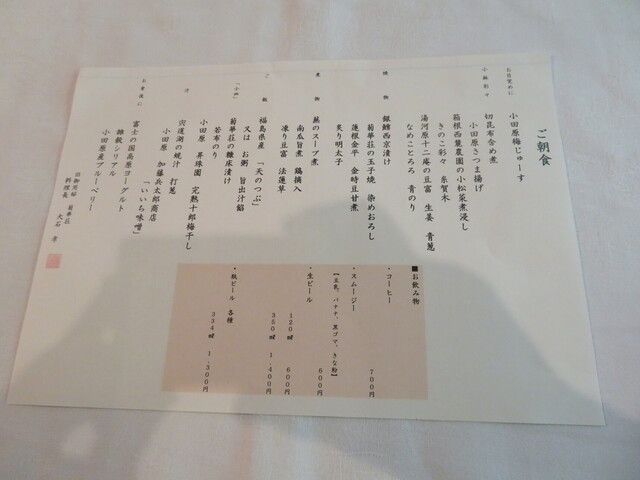 ご朝食
お目覚めに
小田原梅じゅーす
小鉢彩々
切昆布含め煮
小田原さつま揚げ
箱根西麓農園の小松菜煮浸し
きのこ彩々 糸賀木
湯河原十二庵の豆富 生姜 青葱
なめことろろ 青のり
焼物
銀鱈西京漬け
菊華荘の玉子焼 染めおろし
蓮根金平 金時豆甘煮
炙り明太子
煮物
蕪のスープ煮
南瓜旨煮 鶏摘入
凍り豆富 法蓮草
ご飯
福島県産 「天のつぶ」
又は お粥 旨出汁餡
「小皿」
菊華荘の糠床漬け
若布のり
小田原 昇珠園 完熟十郎梅干し
汁
宍道湖の蜆汁 打葱
小田原 加藤兵太郎商店
「いいち味噌」
お食後に
富士の国高原ヨーグルト
雑穀シリアル
小田原産ブルーベリー
旧御用邸 菊華荘
料理長 大石 孝
■お飲み物
・コーヒー 700円
・スムージー
【豆乳、バナナ、黒ゴマ、きな粉】
600円
・生ビール
120㎖ 600円
350㎖ 1,400円
・瓶ビール 各種
334㎖ 1,300円